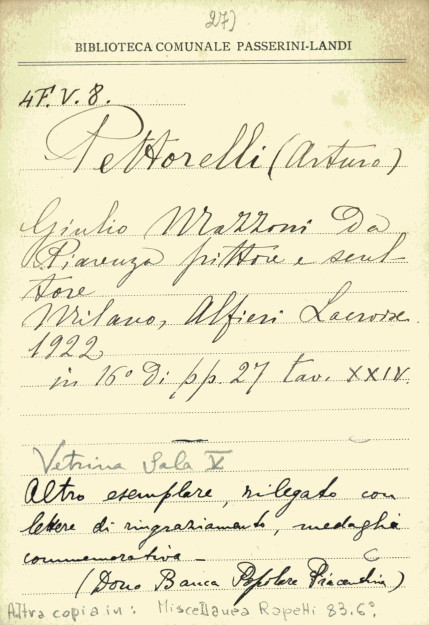 27)
BIBLIOTECA COMUNALE PASSERINI-LANDI
4F.V.8.
Pettorelli (Arturo)
Giulio Mazzoni Da
Piacenza pittore e scul-
tore
Milano, Alfieri Lacroix.
1922
in 16° di pp. 27 tav. XXIV.
Vetrina Sala V
Altro esemplare, rilegato con
lettere di ringraziamento, medaglia
commemorativa -
(Dono Banca Popolare Piacentina)
Altra copia in: Miscellanea Rapetti 83.6°.